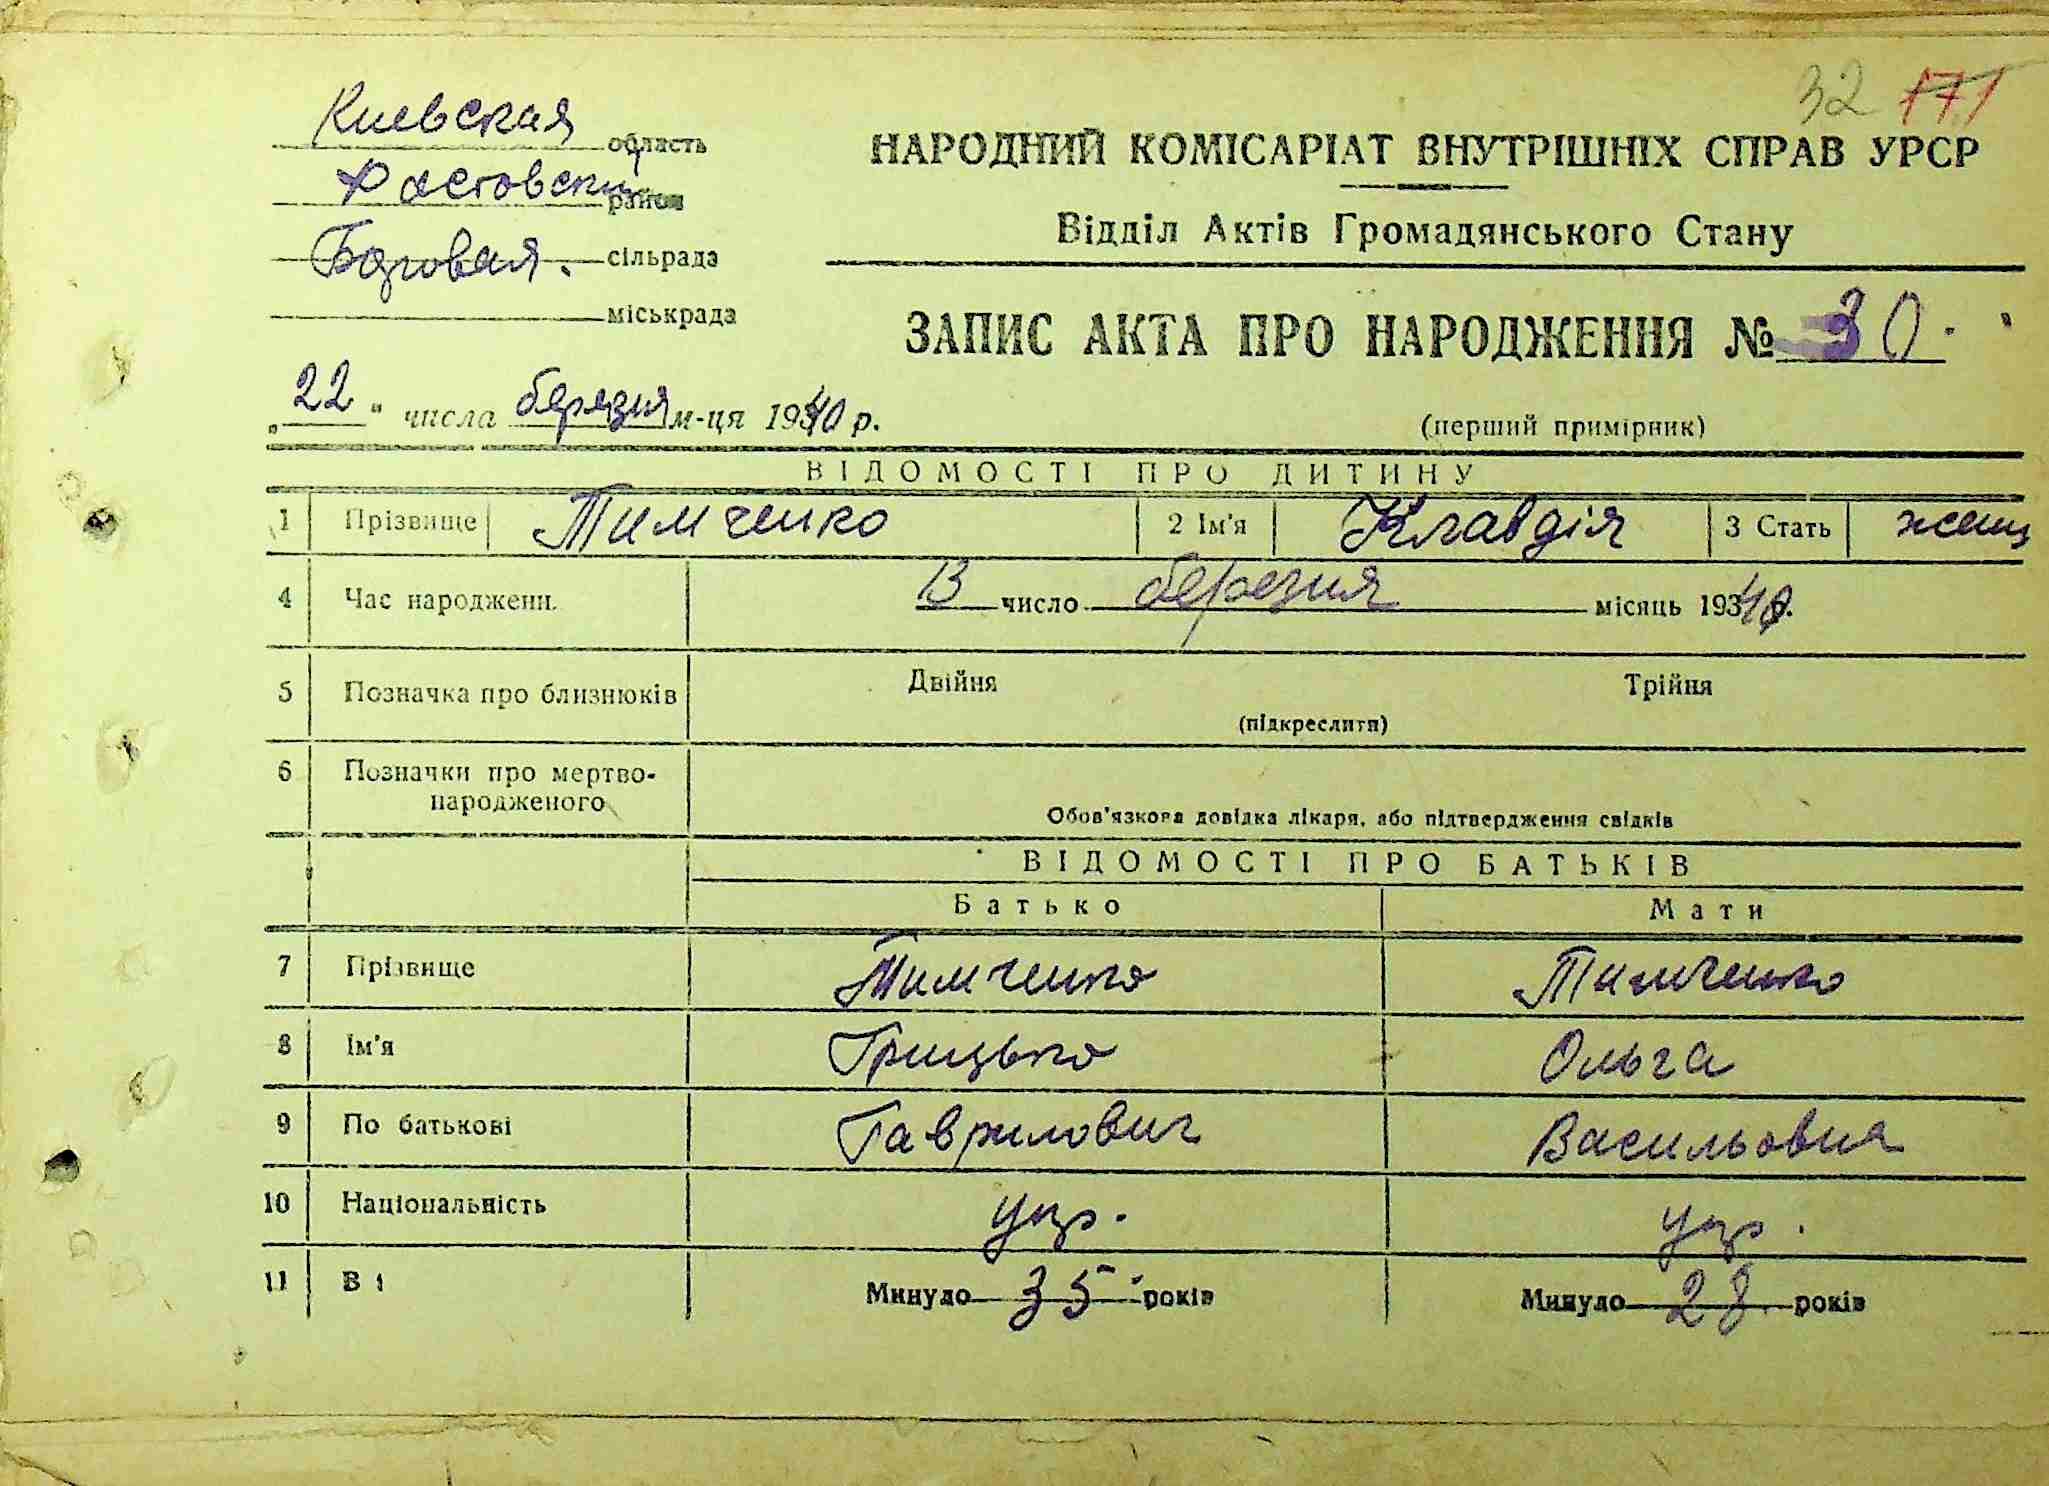 32 171
Киевская область
Фастовский район
НАРОДНИЙ КОМІСАРІАТ ВНУТРІШНІХ СПРАВ УРСР
Відділ Актів Громадянського Стану
сільрада
міськрада
ЗАПИС АКТА ПРО НАРОДЖЕННЯ № 30.
„22" числа березня м-ця 1940 р.
(перший примірник)
ВІДОМОСТІ ПРО ДИТИНУ
1 Прізвище Тимченко 2 Ім'я Клавдія 3 Стать женщ
4 Час народженн. 13 число березня місяць 1940 р.
5 Позначка про близнюків Двійня Трійня
(підкреслити)
6 Позначки про мертво-
народженого
Обов'язкова довідка лікаря, або підтвердження свідків
ВІДОМОСТІ ПРО БАТЬКІВ
Батько Мати
7 Прізвище Тимченко Тимченко
8 Ім'я Грицько Ольга
9 По батькові Гаврилович Васильовна
10 Національність укр. укр.
11 В і Минуло 35 років Минуло 28 років